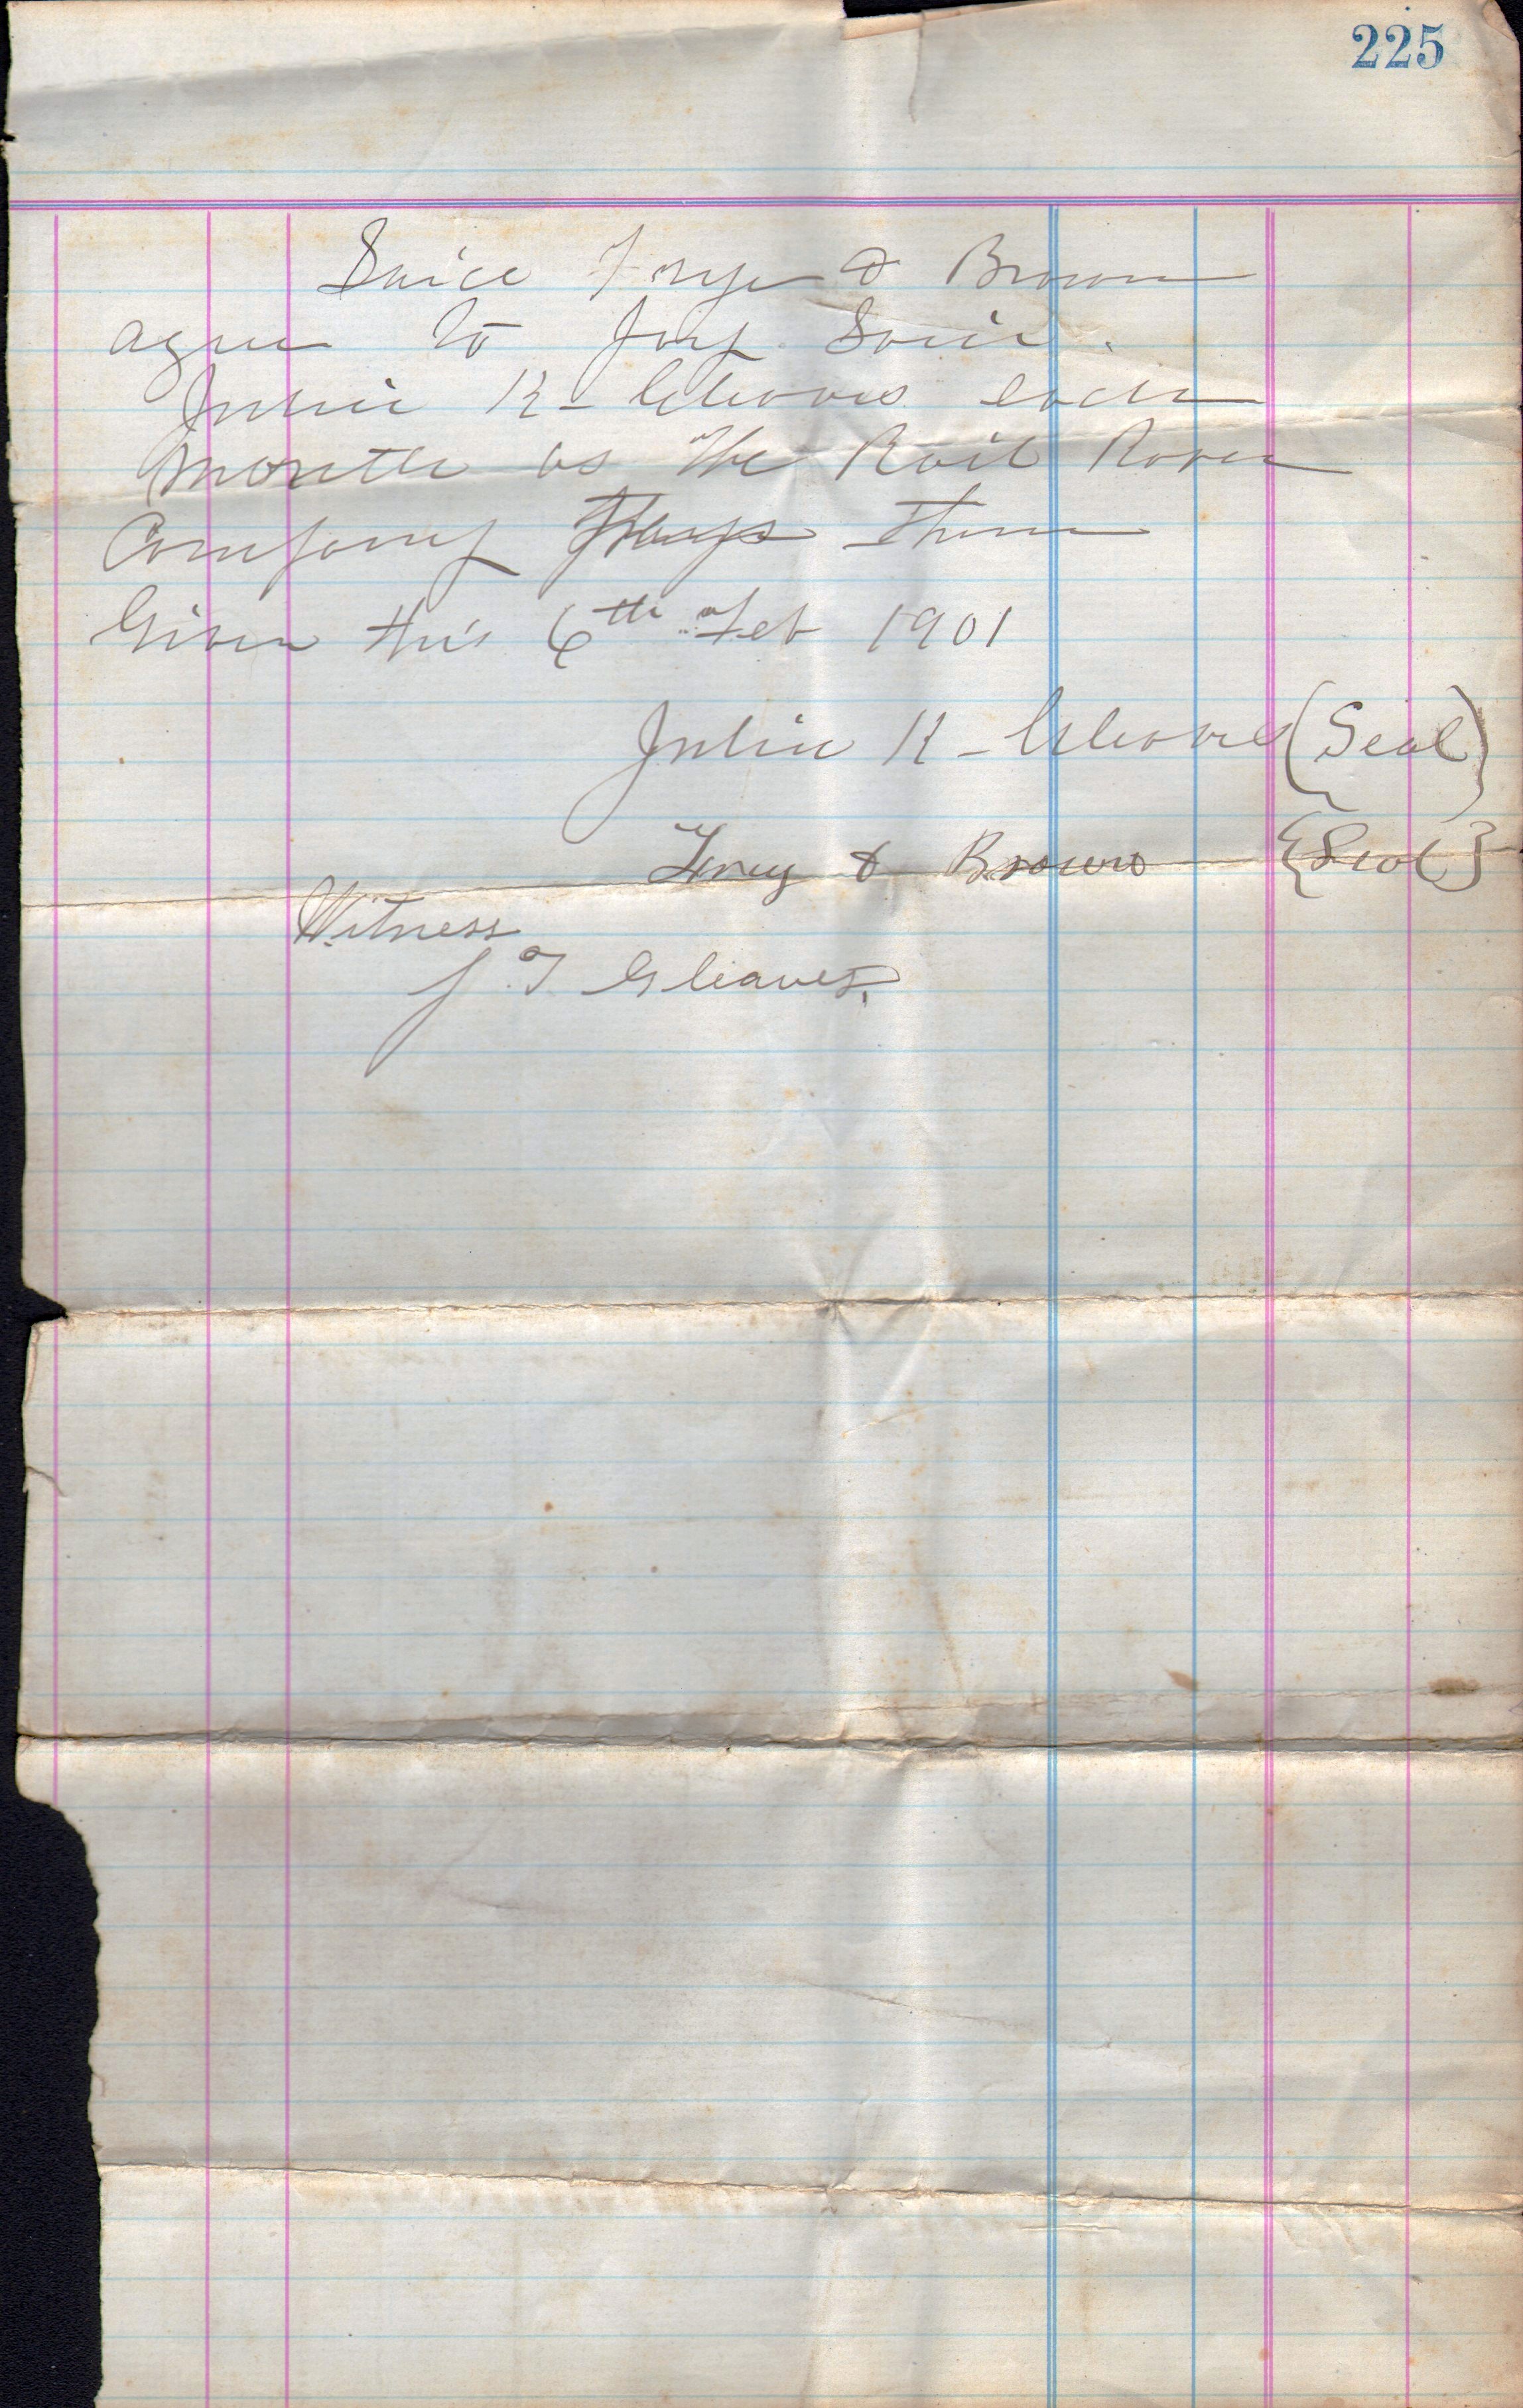 225
Said Frye & Brown
agree to pay Said
Julia K- Gleaves each
month as the Rail Road
Company pays them
Given this 6th Feb 1901
Julia K- Gleaves (Seal)
& Brown {Seal}
Witness
J. T Gleaves.